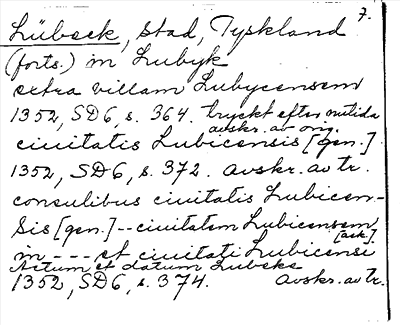 7.
Lübeck, stad, Tyskland
(forts.) in Lubyk
extra villam Lubycensem
1352, SD6, s. 364. tryckt efter nutida
avskr. av orig.
ciuitatis Lubicensis [gen.]
1352, SD6, s. 372. avskr. av tr.
consulibus ciuitatis Lubicen-
sis [gen.] -- ciuitatem Lubicensem
[ack.]
in --- et ciuitati Lubicensi
Actum et datum Lubeke
1352, SD6, s. 374. avskr. av tr.